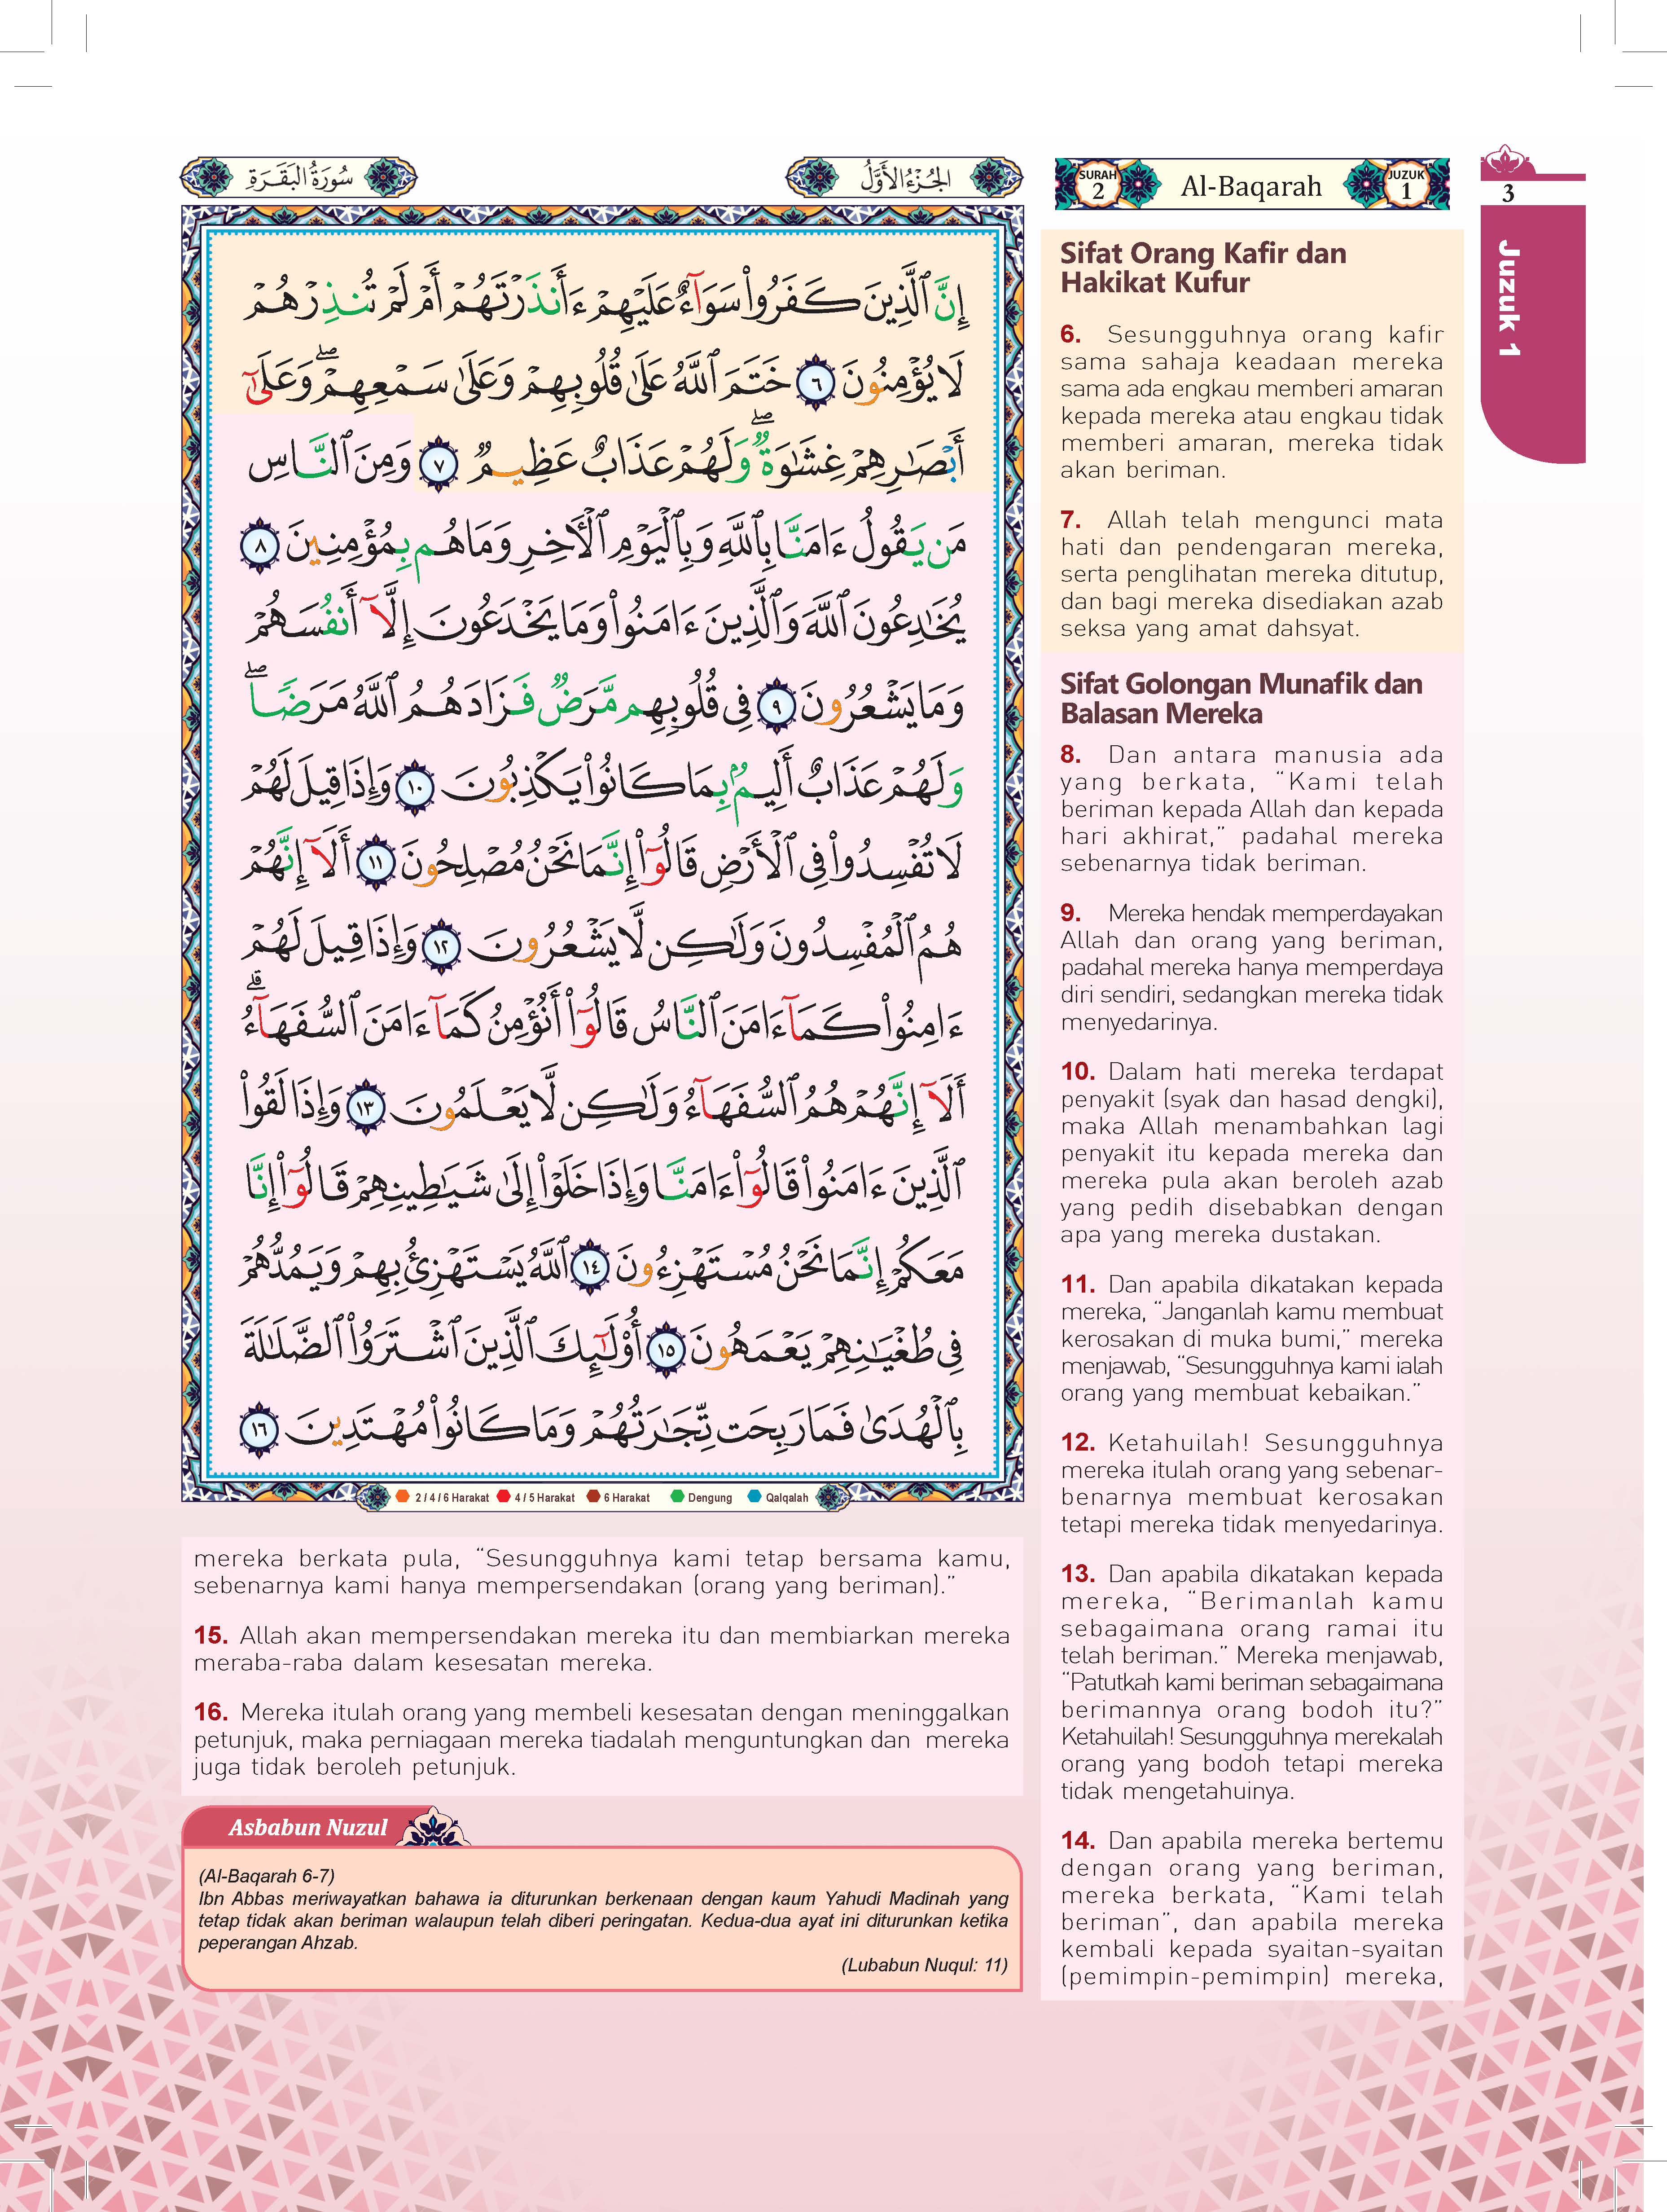 سُورَةُ الْبَقَرَةِ
الجُزْءُ الأَوَّلُ
إِنَّ ٱلَّذِينَ كَفَرُوا۟ سَوَآءٌ عَلَيْهِمْ ءَأَنذَرْتَهُمْ أَمْ لَمْ تُنذِرْهُمْ
لَا يُؤْمِنُونَ ٦ خَتَمَ ٱللَّهُ عَلَىٰ قُلُوبِهِمْ وَعَلَىٰ سَمْعِهِمْ ۖ وَعَلَىٰٓ
أَبْصَٰرِهِمْ غِشَٰوَةٌ ۖ وَلَهُمْ عَذَابٌ عَظِيمٌ ٧ وَمِنَ ٱلنَّاسِ
مَن يَقُولُ ءَامَنَّا بِٱللَّهِ وَبِٱلْيَوْمِ ٱلْءَاخِرِ وَمَا هُم بِمُؤْمِنِينَ ٨
يُخَٰدِعُونَ ٱللَّهَ وَٱلَّذِينَ ءَامَنُوا۟ وَمَا يَخْدَعُونَ إِلَّآ أَنفُسَهُمْ
وَمَا يَشْعُرُونَ ٩ فِى قُلُوبِهِم مَّرَضٌ فَزَادَهُمُ ٱللَّهُ مَرَضًا ۖ
وَلَهُمْ عَذَابٌ أَلِيمٌۢ بِمَا كَانُوا۟ يَكْذِبُونَ ١٠ وَإِذَا قِيلَ لَهُمْ
لَا تُفْسِدُوا۟ فِى ٱلْأَرْضِ قَالُوٓا۟ إِنَّمَا نَحْنُ مُصْلِحُونَ ١١ أَلَآ إِنَّهُمْ
هُمُ ٱلْمُفْسِدُونَ وَلَٰكِن لَّا يَشْعُرُونَ ١٢ وَإِذَا قِيلَ لَهُمْ
ءَامِنُوا۟ كَمَآ ءَامَنَ ٱلنَّاسُ قَالُوٓا۟ أَنُؤْمِنُ كَمَآ ءَامَنَ ٱلسُّفَهَآءُ ۗ
أَلَآ إِنَّهُمْ هُمُ ٱلسُّفَهَآءُ وَلَٰكِن لَّا يَعْلَمُونَ ١٣ وَإِذَا لَقُوا۟
ٱلَّذِينَ ءَامَنُوا۟ قَالُوٓا۟ ءَامَنَّا وَإِذَا خَلَوْا۟ إِلَىٰ شَيَٰطِينِهِمْ قَالُوٓا۟ إِنَّا
مَعَكُمْ إِنَّمَا نَحْنُ مُسْتَهْزِءُونَ ١٤ ٱللَّهُ يَسْتَهْزِئُ بِهِمْ وَيَمُدُّهُمْ
فِى طُغْيَٰنِهِمْ يَعْمَهُونَ ١٥ أُو۟لَٰٓئِكَ ٱلَّذِينَ ٱشْتَرَوُا۟ ٱلضَّلَٰلَةَ
بِٱلْهُدَىٰ فَمَا رَبِحَت تِّجَٰرَتُهُمْ وَمَا كَانُوا۟ مُهْتَدِينَ ١٦
2 / 4 / 6 Harakat 4 / 5 Harakat 6 Harakat Dengung Qalqalah
SURAH 2 Al-Baqarah JUZUK 1
3
Juzuk 1
Sifat Orang Kafir dan
Hakikat Kufur
6. Sesungguhnya orang kafir
sama sahaja keadaan mereka
sama ada engkau memberi amaran
kepada mereka atau engkau tidak
memberi amaran, mereka tidak
akan beriman.
7. Allah telah mengunci mata
hati dan pendengaran mereka,
serta penglihatan mereka ditutup,
dan bagi mereka disediakan azab
seksa yang amat dahsyat.
Sifat Golongan Munafik dan
Balasan Mereka
8. Dan antara manusia ada
yang berkata, “Kami telah
beriman kepada Allah dan kepada
hari akhirat,” padahal mereka
sebenarnya tidak beriman.
9. Mereka hendak memperdayakan
Allah dan orang yang beriman,
padahal mereka hanya memperdaya
diri sendiri, sedangkan mereka tidak
menyedarinya.
10. Dalam hati mereka terdapat
penyakit (syak dan hasad dengki),
maka Allah menambahkan lagi
penyakit itu kepada mereka dan
mereka pula akan beroleh azab
yang pedih disebabkan dengan
apa yang mereka dustakan.
11. Dan apabila dikatakan kepada
mereka, “Janganlah kamu membuat
kerosakan di muka bumi,” mereka
menjawab, “Sesungguhnya kami ialah
orang yang membuat kebaikan.”
12. Ketahuilah! Sesungguhnya
mereka itulah orang yang sebenar-
benarnya membuat kerosakan
tetapi mereka tidak menyedarinya.
13. Dan apabila dikatakan kepada
mereka, “Berimanlah kamu
sebagaimana orang ramai itu
telah beriman.” Mereka menjawab,
“Patutkah kami beriman sebagaimana
berimannya orang bodoh itu?”
Ketahuilah! Sesungguhnya merekalah
orang yang bodoh tetapi mereka
tidak mengetahuinya.
14. Dan apabila mereka bertemu
dengan orang yang beriman,
mereka berkata, “Kami telah
beriman”, dan apabila mereka
kembali kepada syaitan-syaitan
(pemimpin-pemimpin) mereka,
mereka berkata pula, “Sesungguhnya kami tetap bersama kamu,
sebenarnya kami hanya mempersendakan (orang yang beriman).”
15. Allah akan mempersendakan mereka itu dan membiarkan mereka
meraba-raba dalam kesesatan mereka.
16. Mereka itulah orang yang membeli kesesatan dengan meninggalkan
petunjuk, maka perniagaan mereka tiadalah menguntungkan dan mereka
juga tidak beroleh petunjuk.
Asbabun Nuzul
(Al-Baqarah 6-7)
Ibn Abbas meriwayatkan bahawa ia diturunkan berkenaan dengan kaum Yahudi Madinah yang
tetap tidak akan beriman walaupun telah diberi peringatan. Kedua-dua ayat ini diturunkan ketika
peperangan Ahzab.
(Lubabun Nuqul: 11)